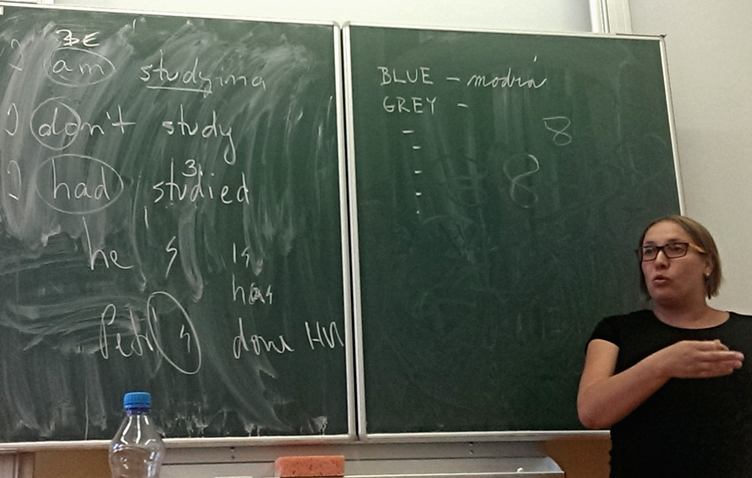 BE
I am studying
I don't study
I had studied
3
he s is
has
Petr s done HW
BLUE - modrá
GREY -
-
-
-
-
8
8